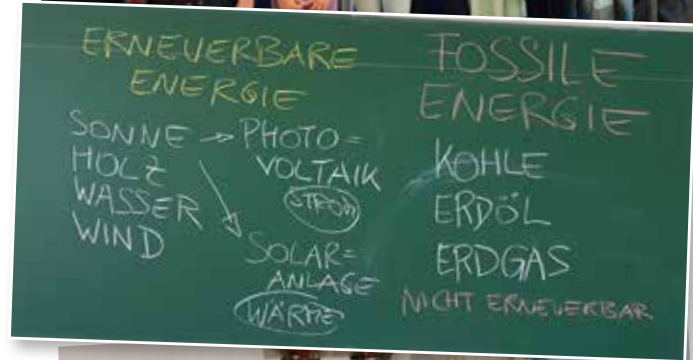 ERNEUERBARE
ENERGIE
SONNE → PHOTO=
HOLZ VOLTAIK
WASSER STROM
WIND
SOLAR=
ANLAGE
WÄRME
FOSSILE
ENERGIE
KOHLE
ERDÖL
ERDGAS
NICHT ERNEUERBAR